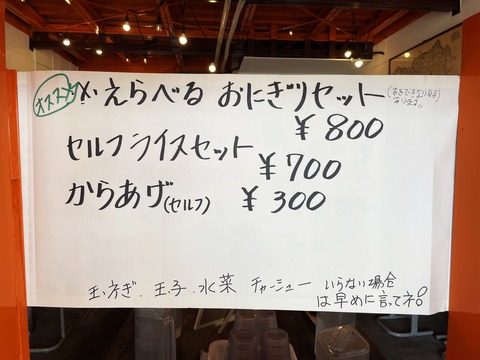 オススメ
えらべる おにぎりセット
あります。
¥800
セルフライスセット
¥700
からあげ(セルフ) ¥300
玉ネギ、玉子、水菜 チャーシュー いらない場合
は早めに言ってネ!